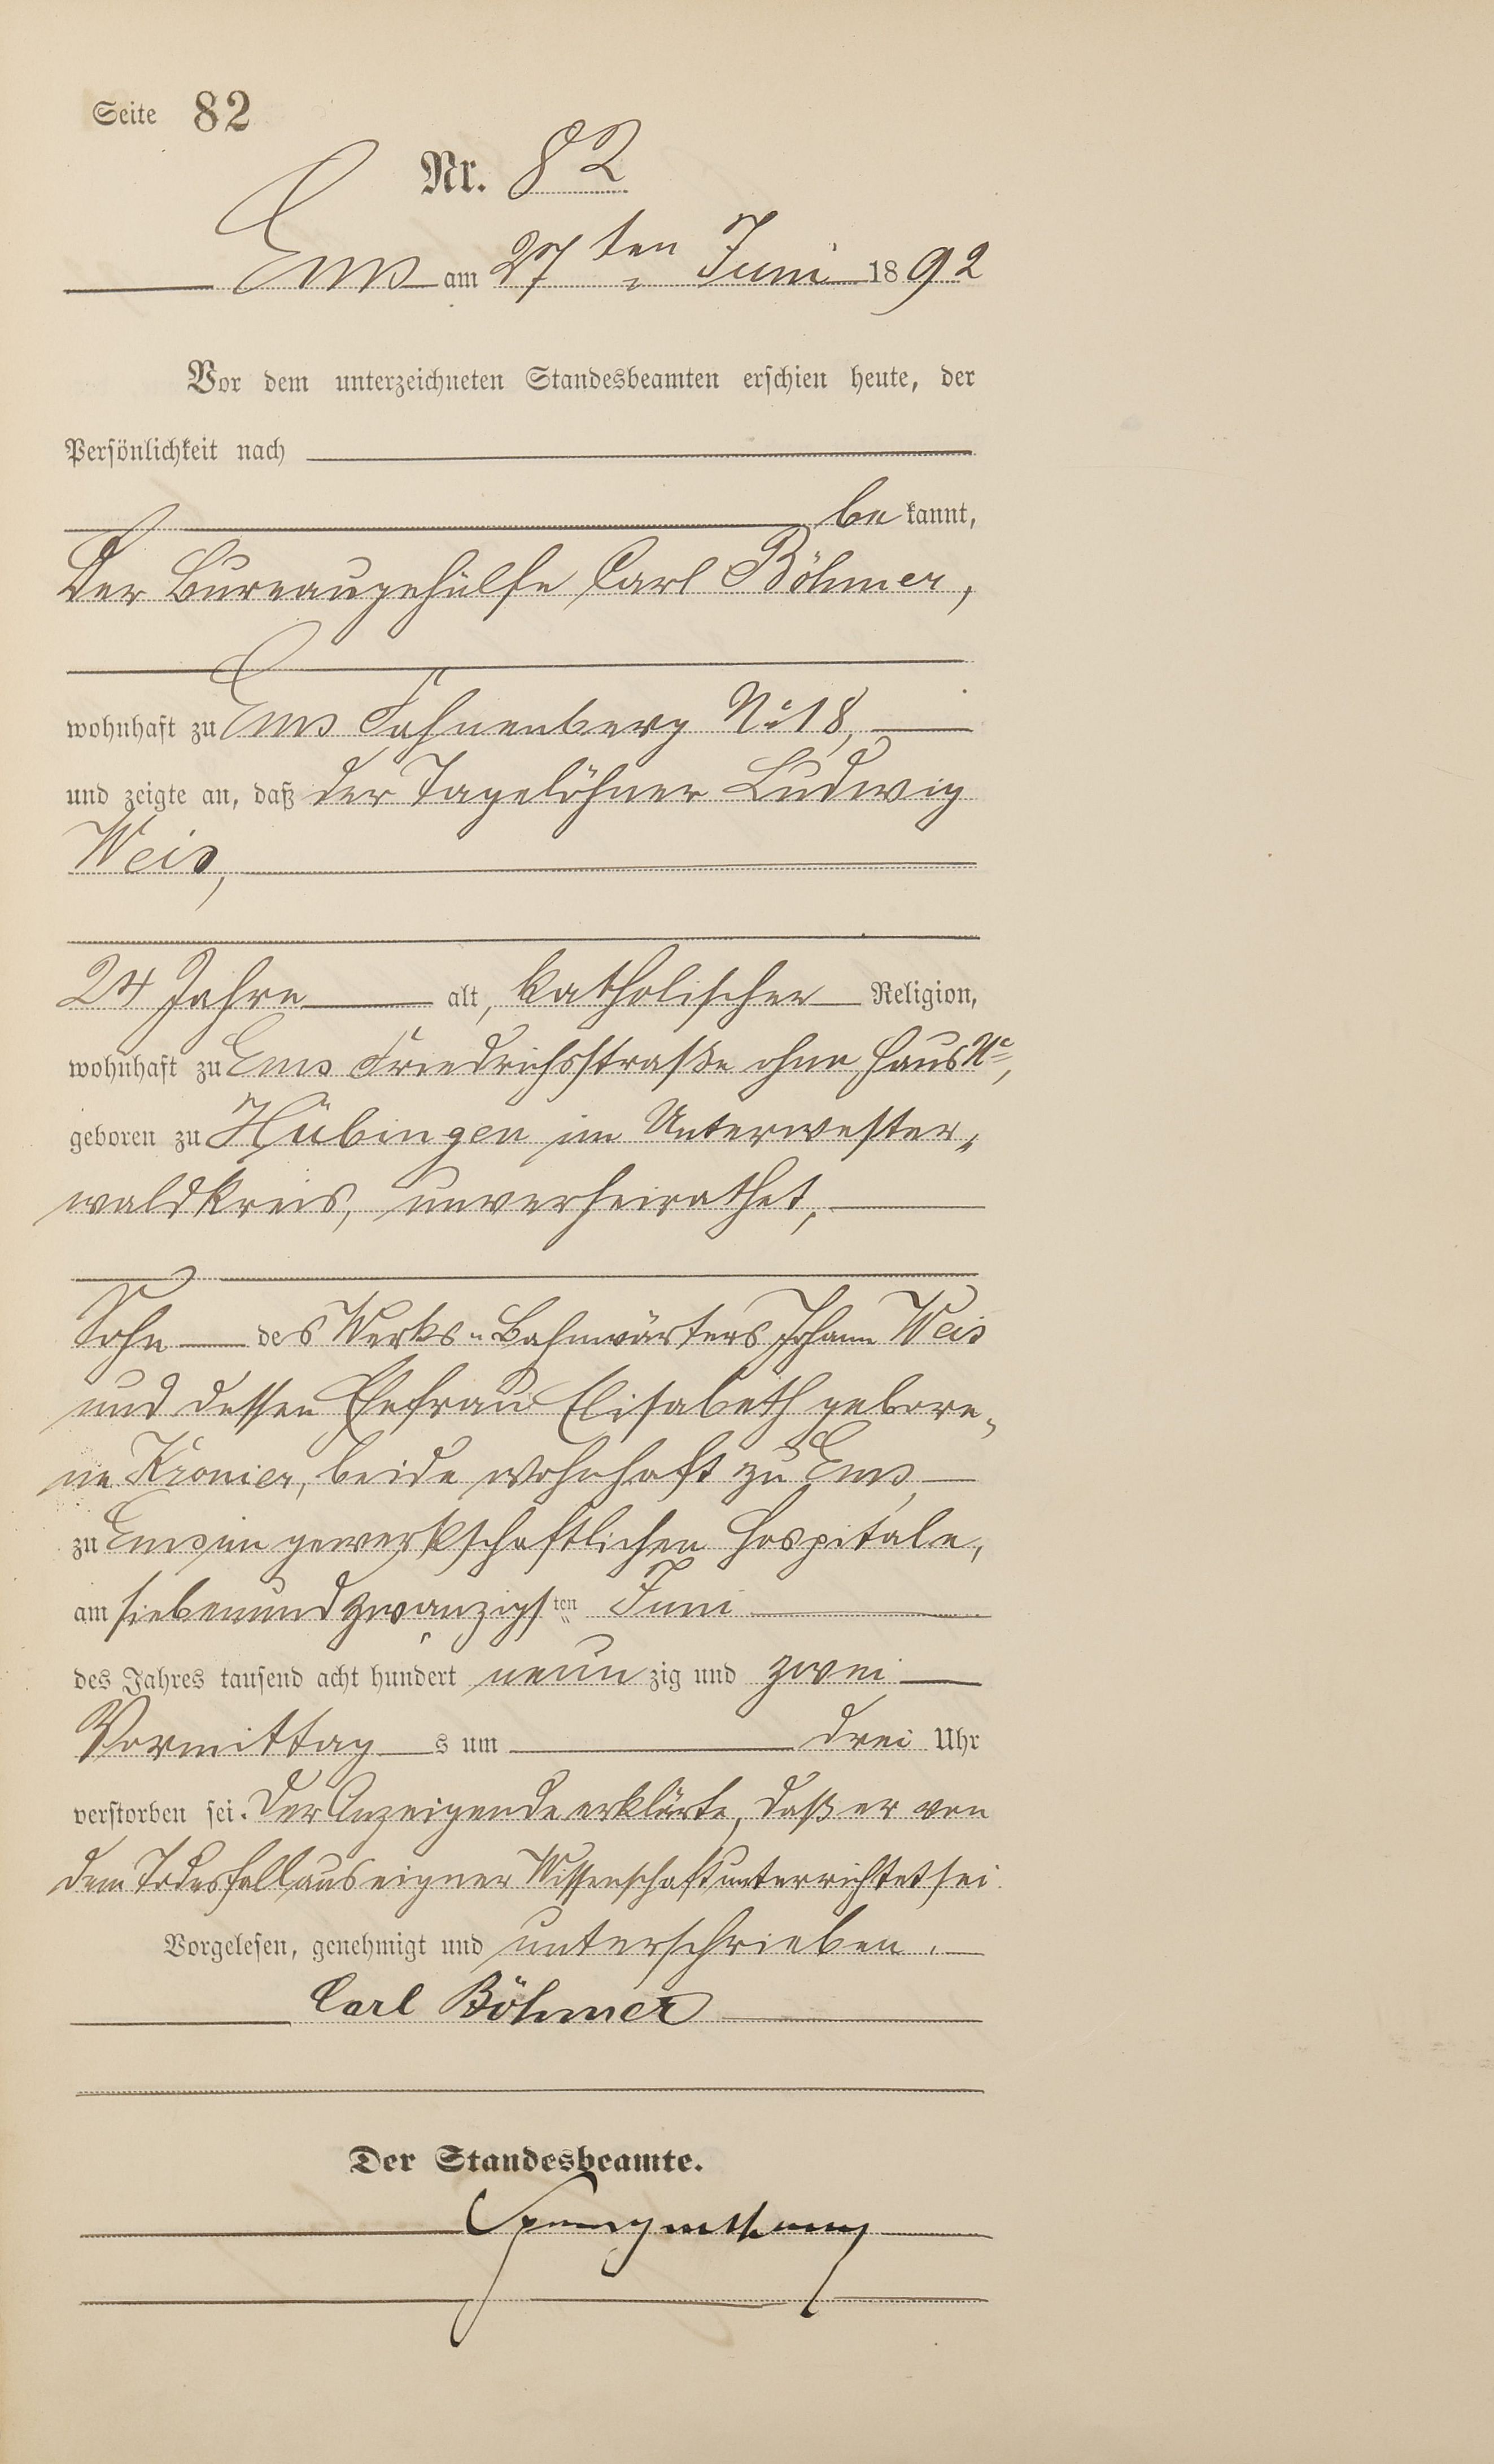 Seite 82
Nr. 82
Ems am 27ten Juni 1892
Vor dem unterzeichneten Standesbeamten erschien heute, der
Persönlichkeit nach
bekannt,
Der Bureaugehülfe Carl Böhmer,
wohnhaft zu Ems Fahnenberg No 18,
und zeigte an, daß der Tagelöhner Ludwig
Weis,
24 Jahre alt, katholischer Religion,
wohnhaft zu Ems Friedrichsstraße ohne Haus No,
geboren zu Hübingen im Unterwester-
waldkreis, unverheirathet,
Sohn des Werks-Bahnwärters Johann Weis
und dessen Ehefrau Elisabeth gebore-
ne Kronier, beide wohnhaft zu Ems,
zu Ems im gewerkschaftlichen Hospitale,
am siebenundzwanzigsten Juni
des Jahres tausend acht hundert neunzig und zwei
Vormittags um drei Uhr
verstorben sei. Der Anzeigende erklärte, daß er von
dem Todesfall aus eigner Wissenschaft unterrichtet sei.
Vorgelesen, genehmigt und unterschrieben.
Carl Böhmer
Der Standesbeamte.